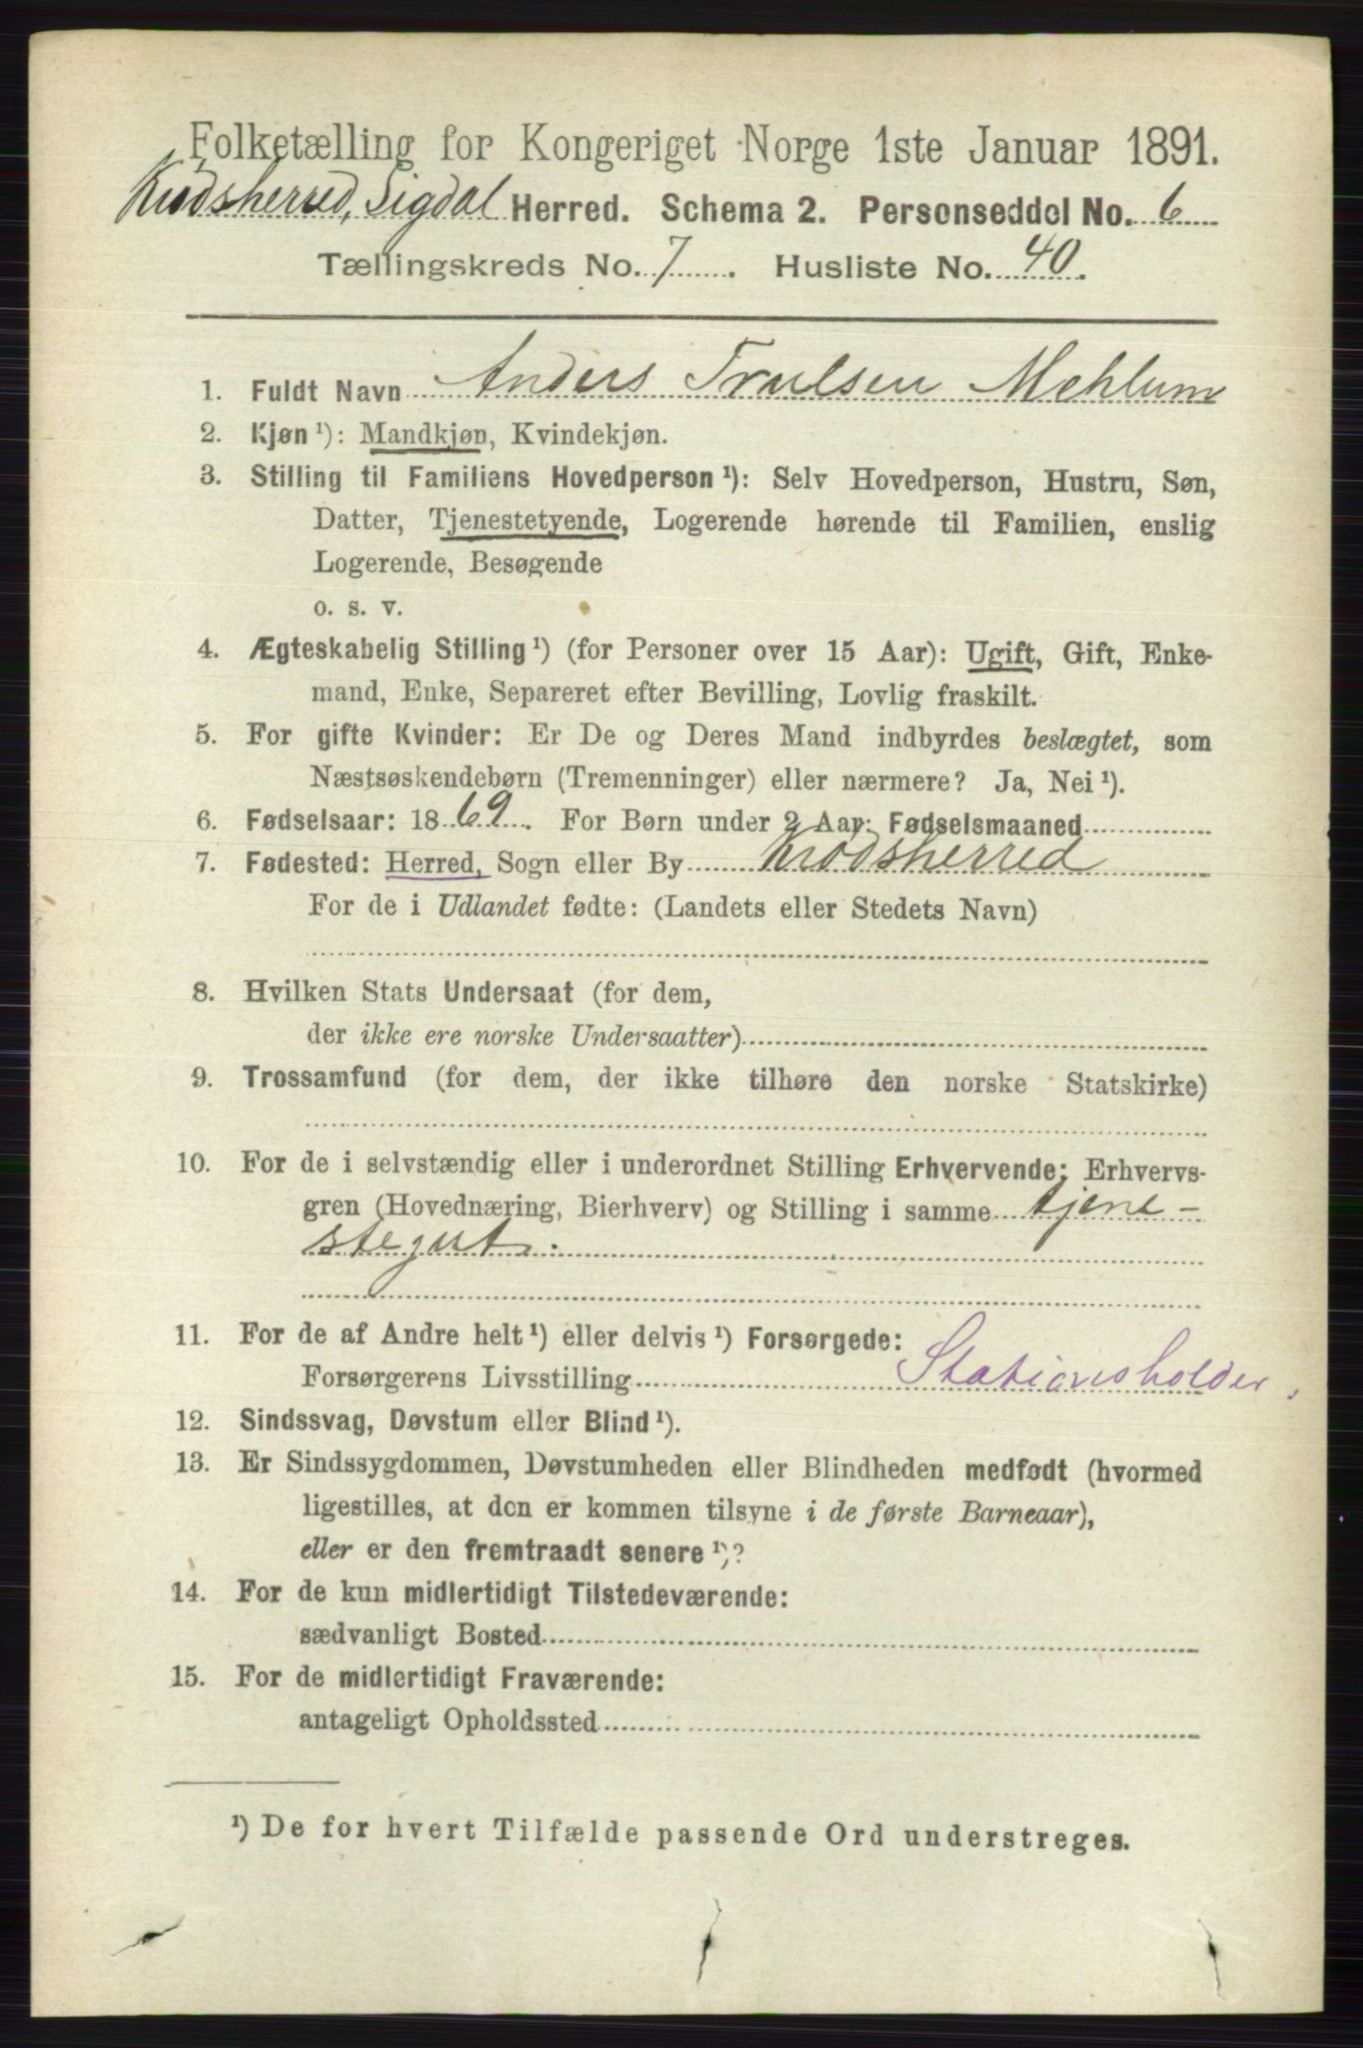 Folketælling for Kongeriget Norge 1ste Januar 1891.
Krødsherred, Sigdal Herred. Schema 2. Personseddel No. 6
Tællingskreds No. 7. Husliste No. 40.
1. Fuldt Navn Anders Trulsen Mehlum
2. Kjøn ¹): Mandkjøn, Kvindekjøn.
3. Stilling til Familiens Hovedperson ¹): Selv Hovedperson, Hustru, Søn,
Datter, Tjenestetyende, Logerende hørende til Familien, enslig
Logerende, Besøgende
o. s. v.
4. Ægteskabelig Stilling ¹) (for Personer over 15 Aar): Ugift, Gift, Enke-
mand, Enke, Separeret efter Bevilling, Lovlig fraskilt.
5. For gifte Kvinder: Er De og Deres Mand indbyrdes beslægtet, som
Næstsøskendebørn (Tremenninger) eller nærmere? Ja, Nei ¹).
6. Fødselsaar: 1869. For Børn under 2 Aar: Fødselsmaaned
7. Fødested: Herred, Sogn eller By Krødsherred
For de i Udlandet fødte: (Landets eller Stedets Navn)
8. Hvilken Stats Undersaat (for dem,
der ikke ere norske Undersaatter)
9. Trossamfund (for dem, der ikke tilhøre den norske Statskirke)
10. For de i selvstændig eller i underordnet Stilling Erhvervende: Erhvervs-
gren (Hovednæring, Bierhverv) og Stilling i samme tjene-
stegut.
11. For de af Andre helt ¹) eller delvis ¹) Forsørgede:
Forsørgerens Livsstilling Stationsholder.
12. Sindssvag, Døvstum eller Blind ¹).
13. Er Sindssygdommen, Døvstumheden eller Blindheden medfødt (hvormed
ligestilles, at den er kommen tilsyne i de første Barneaar),
eller er den fremtraadt senere ¹)?
14. For de kun midlertidigt Tilstedeværende:
sædvanligt Bosted
15. For de midlertidigt Fraværende:
antageligt Opholdssted
¹) De for hvert Tilfælde passende Ord understreges.